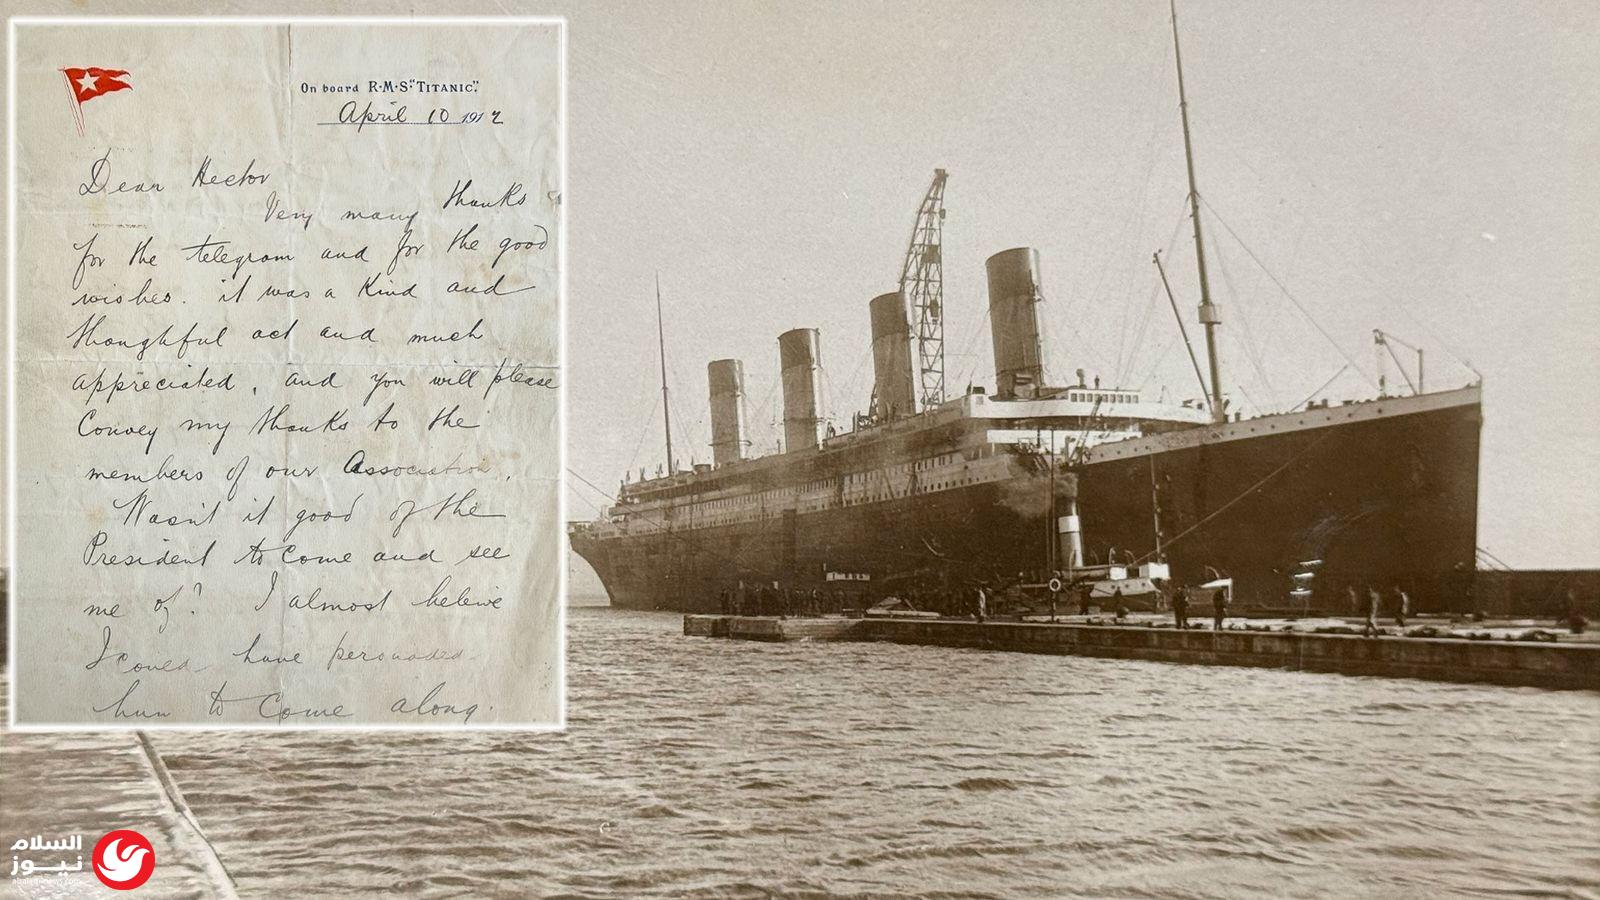 On board R·M·S·"TITANIC".
April 10 1912
Dear Hector
Very many thanks
for the telegram and for the good
wishes. it was a kind and
thoughtful act and much
appreciated, and you will please
Convey my thanks to the
members of our Association.
Wasn't it good of the
President to come and see
me of? I almost beleive
I coued have persuaded
him to come along.
السلام
نيوز